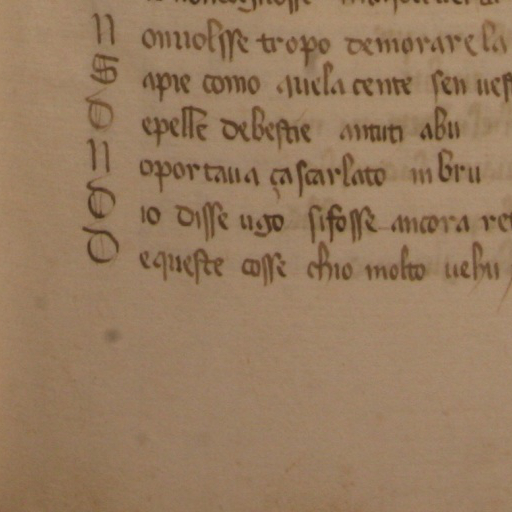 N onuolsse tropo demorare la
S apie como quela cente sen uest
D epelle debestie antuti abu
N oportaua ça scarlato in bru
D io disse ugo sifosse ancora re
D equeste cosse chio molto uehu